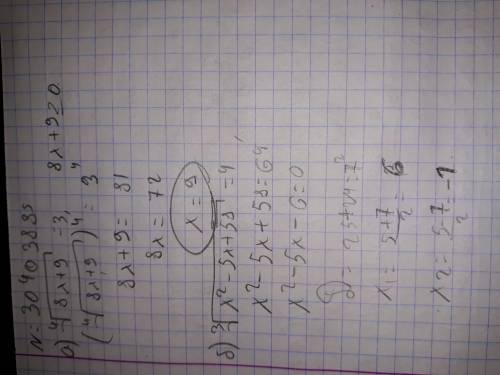 N: 30403885
а) ⁴√(8x+9) = 3, 8x+9≥0
(⁴√(8x+9))⁴ = 3⁴
8x+9 = 81
8x = 72
x = 9
б) ³√(x²-5x+58) = 4
x²-5x+58=64
x²-5x-6=0
D = 25+24=7²
x₁ = (5+7)/2 = 6
x₂ = (5-7)/2 = -1